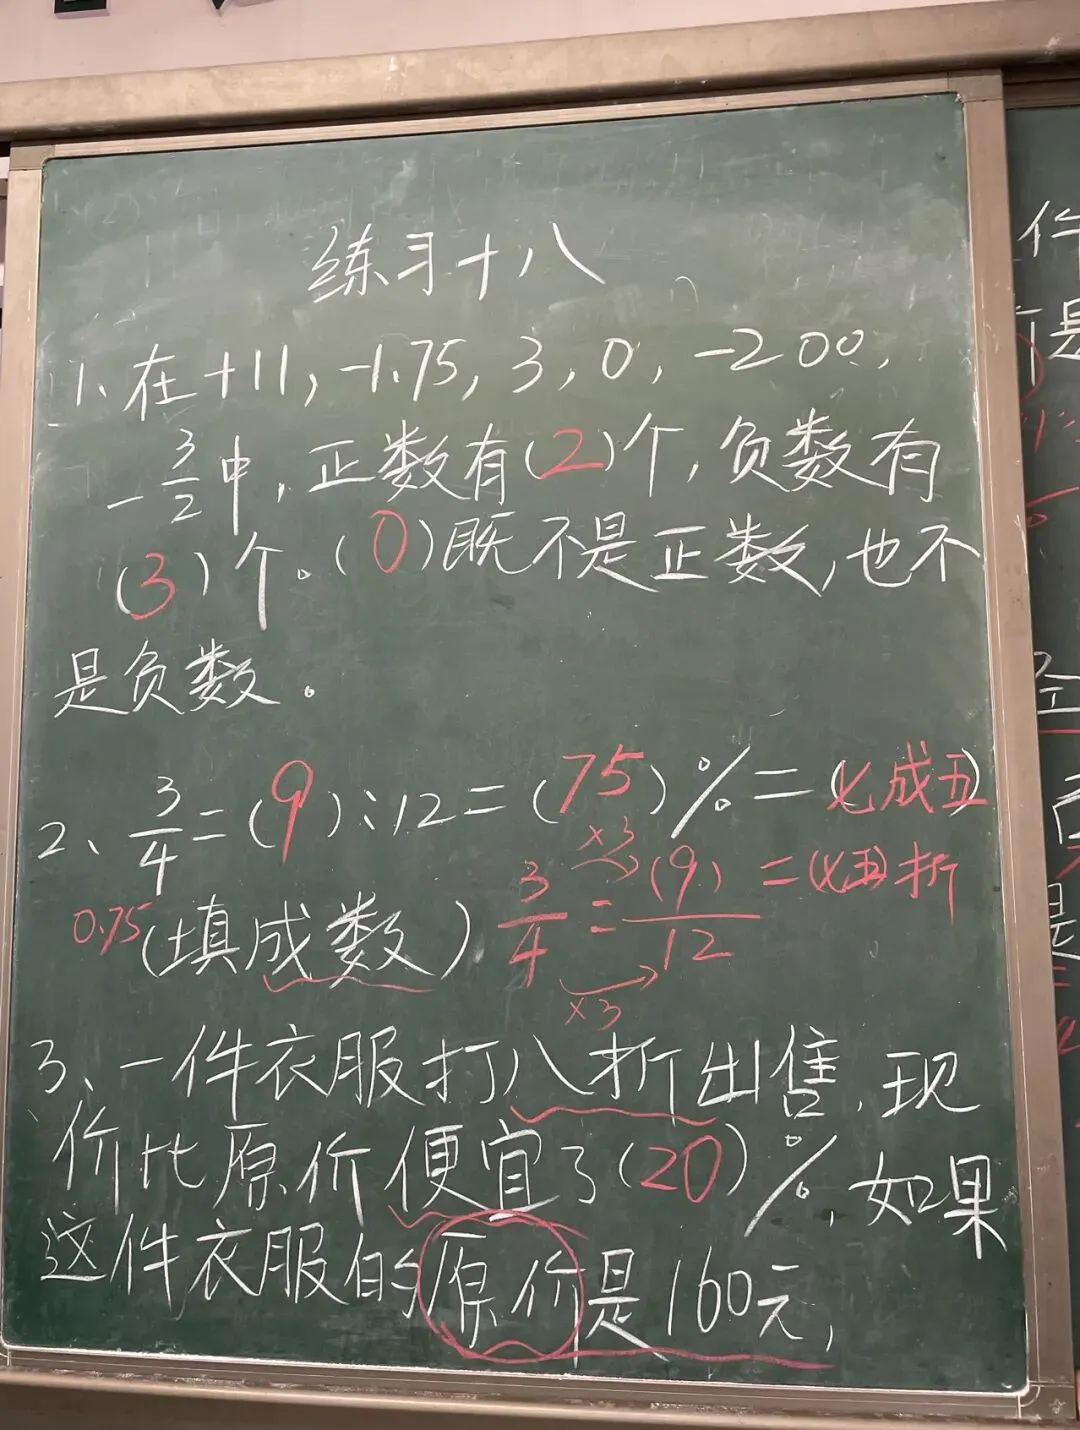 练习十八
1、在+11,-1.75,3,0,-200,
-3/2中,正数有(2)个,负数有
(3)个。(0)既不是正数,也不
是负数。
2、3/4=(9):12=(75)%=(七成五)
0.75(填成数) 3/4=(9)/12=(七五)折
×3
×3
3、一件衣服打八折出售,现
价比原价便宜了(20)%,如果
这件衣服的原价是160元,
件
是